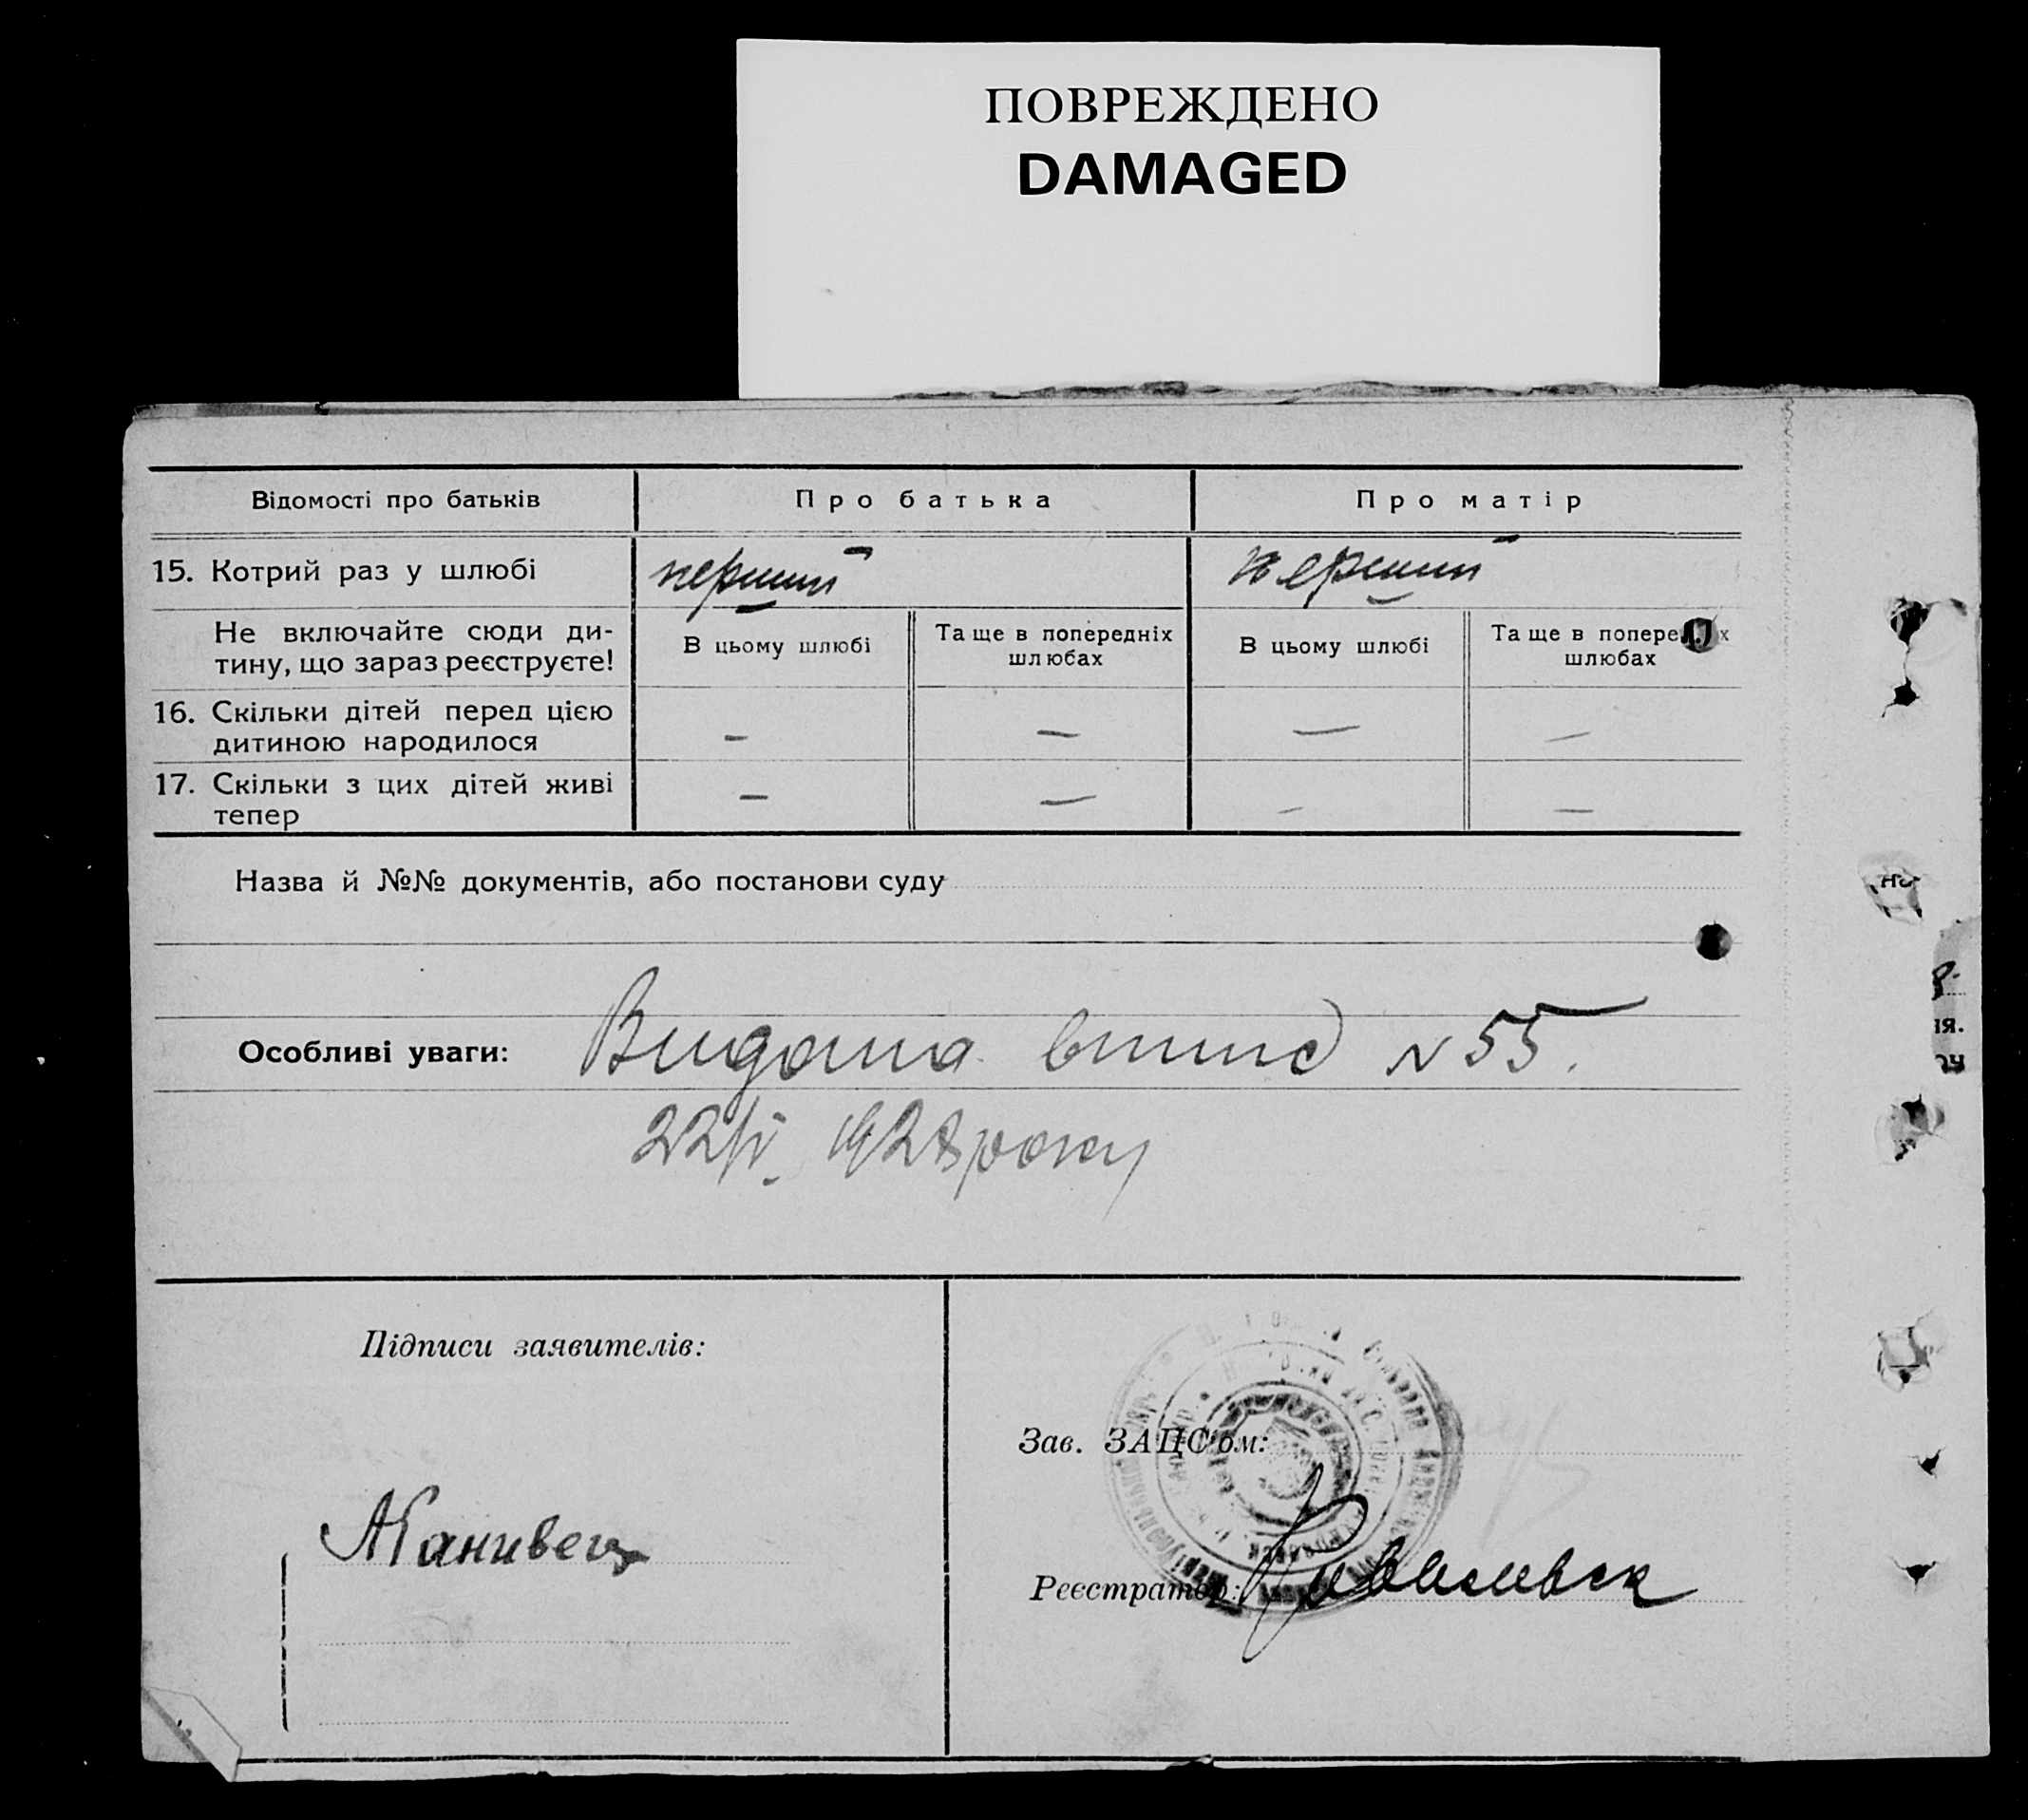 ПОВРЕЖДЕНО
DAMAGED
Відомості про батьків
Про батька
Про матір
15. Котрий раз у шлюбі
перший
перший
Не включайте сюди ди-
тину, що зараз реєструєте!
В цьому шлюбі
Та ще в попередніх
шлюбах
В цьому шлюбі
Та ще в попере х
шлюбах
16. Скільки дітей перед цією
дитиною народилося
–
–
–
–
17. Скільки з цих дітей живі
тепер
–
–
–
–
Назва й №№ документів, або постанови суду
Особливі уваги:
Видана випис N 55.
22/V 1928 року
Підписи заявителів:
Зав. ЗАЦС'ом:
Реєстратор: